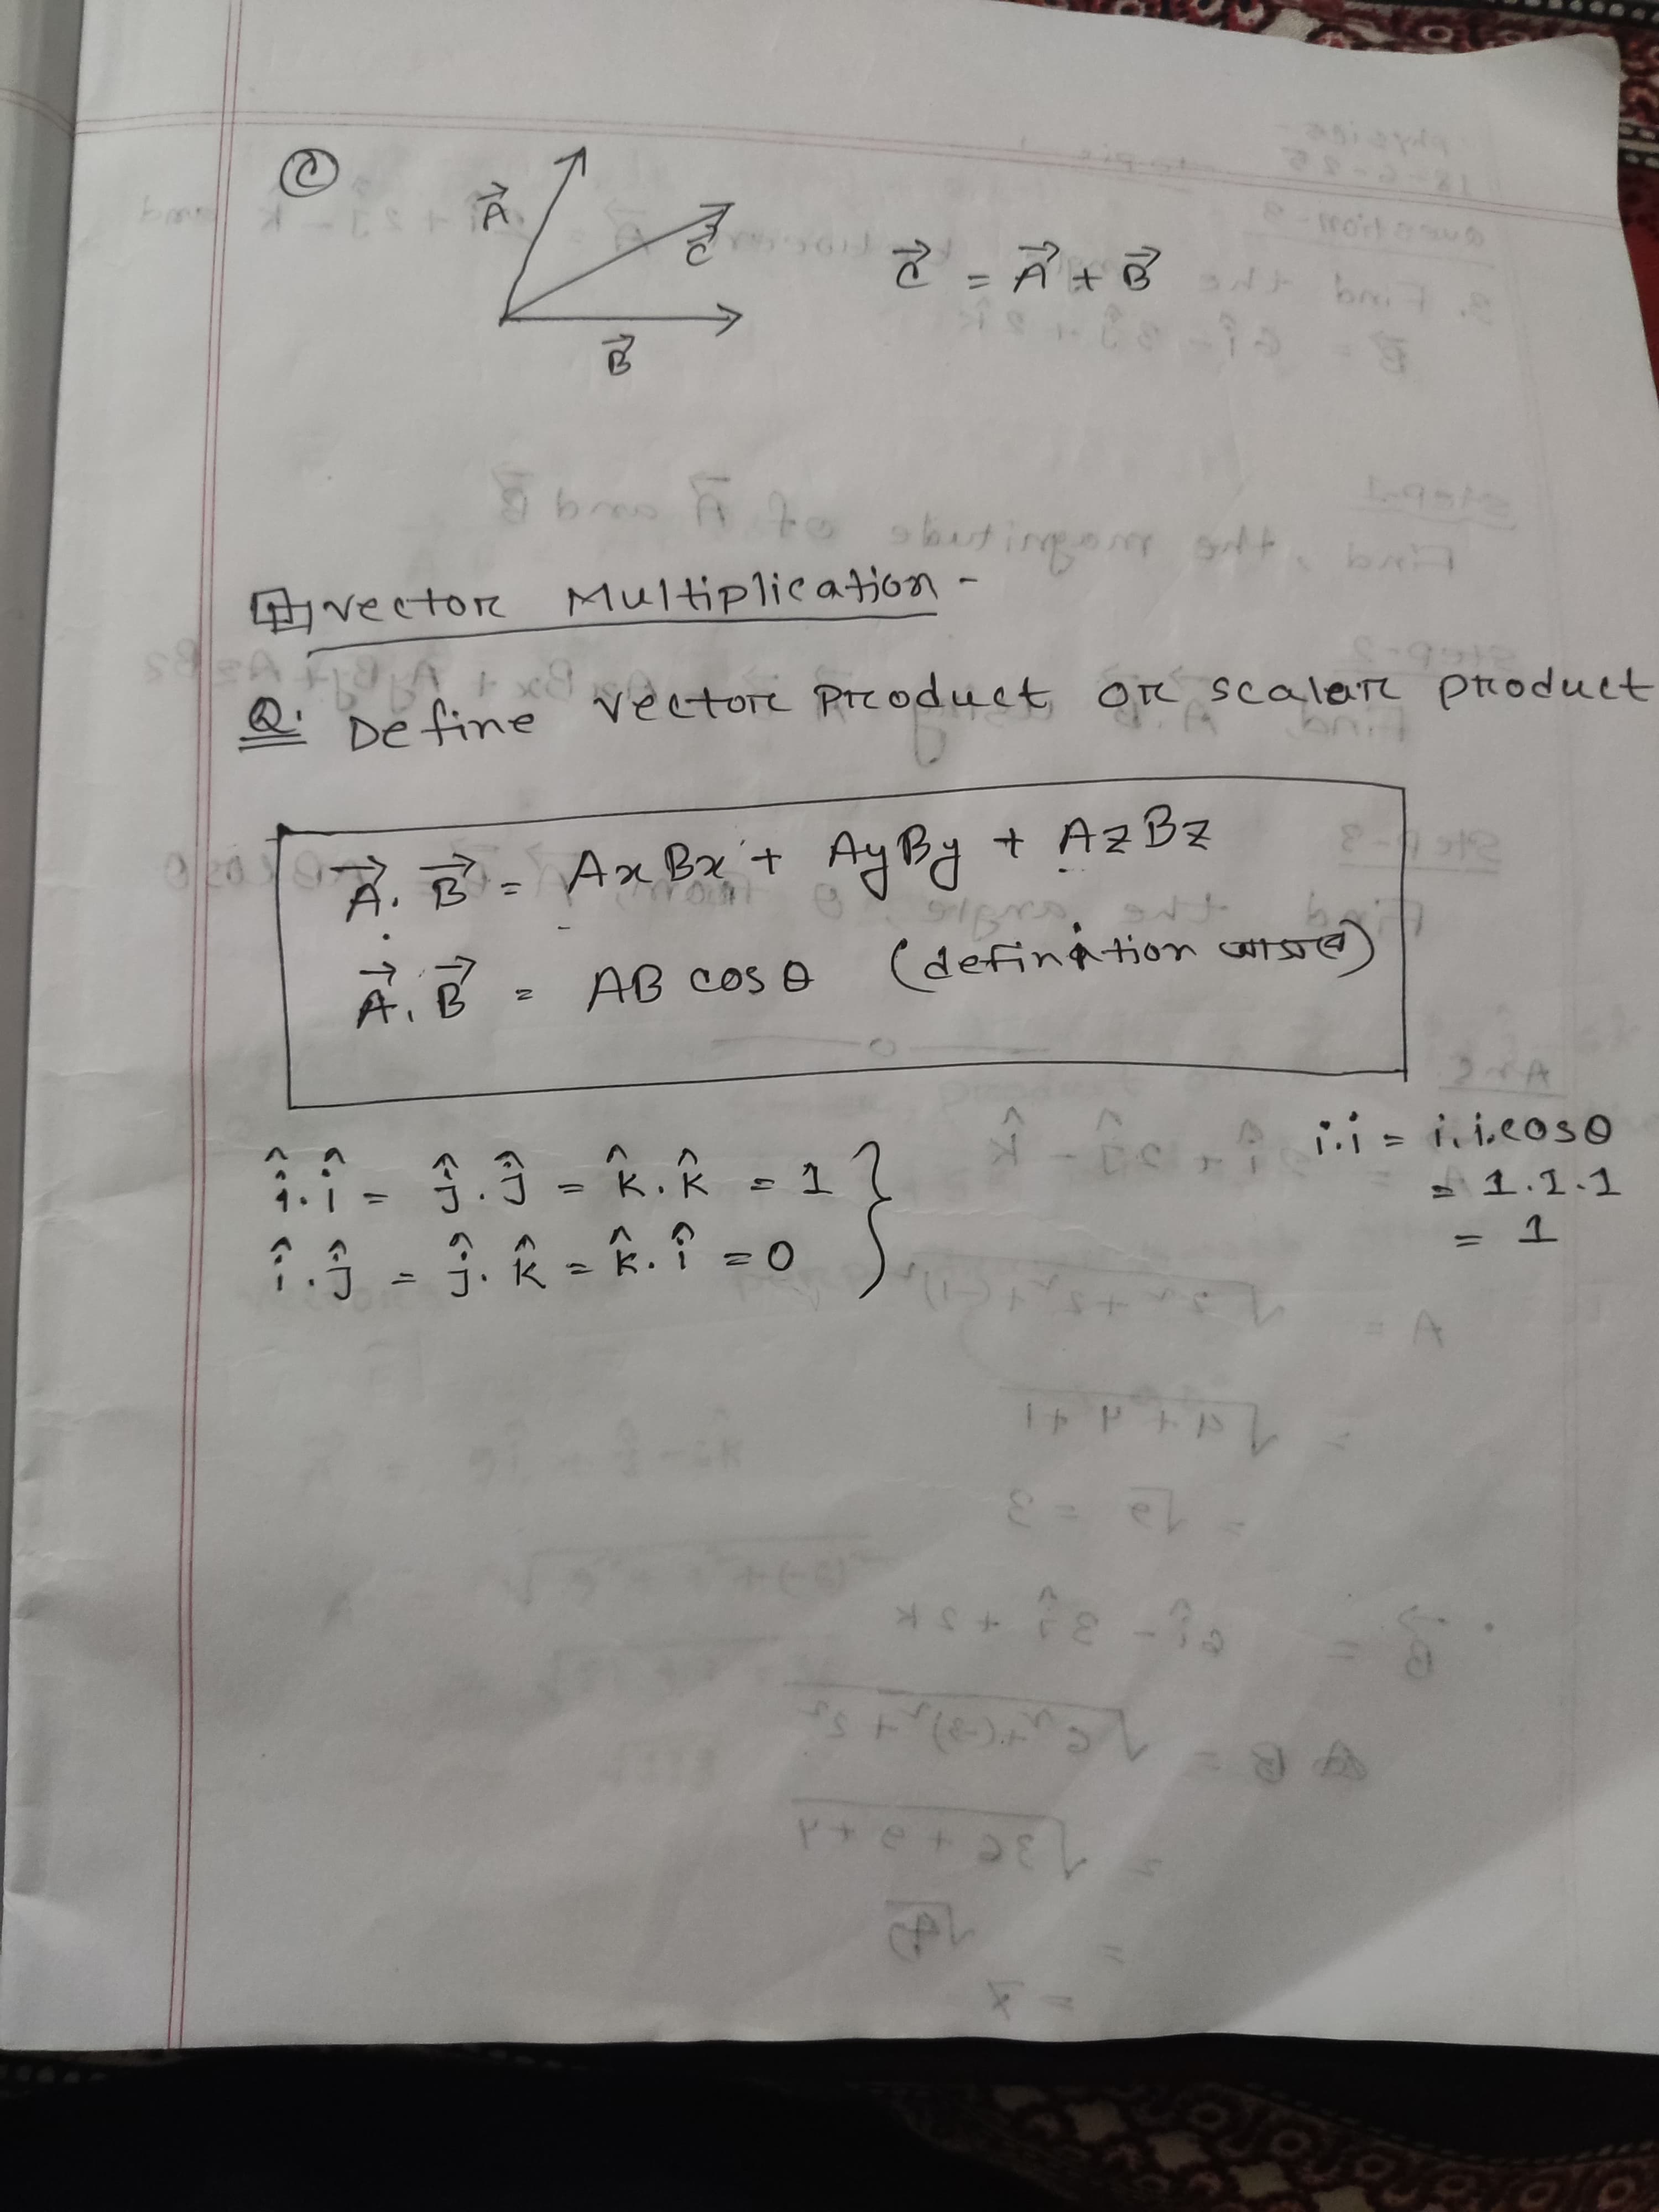 C
A⃗
C⃗
B⃗
C⃗ = A⃗ + B⃗
Vector Multiplication -
Q. Define vector product or scalar product
A⃗. B⃗ = AxBx + AyBy + AzBz
A⃗. B⃗ = AB cosθ (definition আসবে)
î.î = ĵ.ĵ = k̂.k̂ = 1
î.ĵ = ĵ.k̂ = k̂.î = 0
i.i = i.i.cosθ
= 1.1.1
= 1